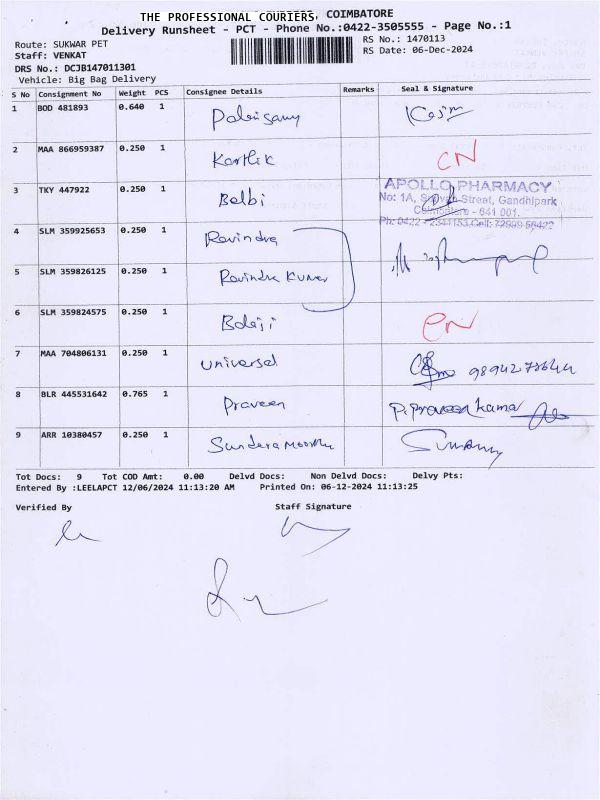 THE PROFESSIONAL COURIERS, COIMBATORE
Delivery Runsheet - PCT - Phone No.:0422-3505555 - Page No.:1
Route: SUKWAR PET
RS No.: 1470113
Staff: VENKAT
RS Date: 06-Dec-2024
DRS No.: DCJB147011301
Vehicle: Big Bag Delivery
S No Consignment No Weight PCS Consignee Details Remarks Seal & Signature
1 BOD 481893 0.640 1
2 MAA 866959387 0.250 1 Karthik CN
3 TKY 447922 0.250 1 Balbi
APOLLO PHARMACY
No: 1A, Street, Gandhipark
Coimbatore - 641 001.
4 SLM 359925653 0.250 1 Ravindra
5 SLM 359826125 0.250 1 Ravindra Kumar
6 SLM 359824575 0.250 1 Balaji CN
7 MAA 704806131 0.250 1 Universal
8 BLR 445531642 0.765 1 Praveen P. Praveen Kumar
9 ARR 10380457 0.250 1 Sundaramoorthy
Tot Docs: 9 Tot COD Amt: 0.00 Delvd Docs: Non Delvd Docs: Delvy Pts:
Entered By :LEELAPCT 12/06/2024 11:13:20 AM Printed On: 06-12-2024 11:13:25
Verified By Staff Signature